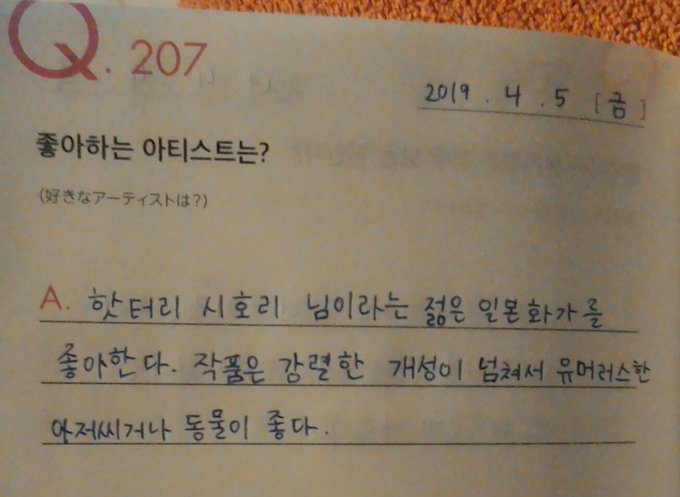 Q. 207
2019 . 4 . 5 [금]
좋아하는 아티스트는?
(好きなアーティストは?)
A. 핫터리 시호리 님이라는 젊은 일본화가를
좋아한다. 작품은 강렬한 개성이 넘쳐서 유머러스한
아저씨거나 동물이 좋다.